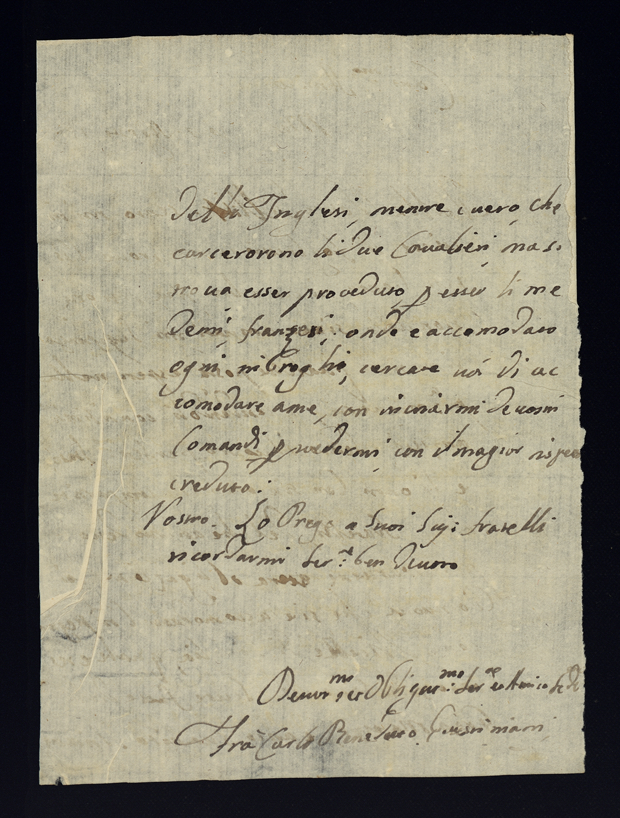 delli Inglesi, mentre è vero, che
carcerorono li due Cavalieri, ma si
trova esser proveduto, p esser li me
demi, franzesi, onde è accomodato
ogni imbroglio, cercate voi di ac
comodare a me, con inviarmi de vostri
Comandi p vedermi, con il magior
creduto:
Vostro. Lo Prego a Suoi Sigi fratelli
ricordarmi Ser.e ben devoto
Devot.mo et Obligat.mo Ser.re
Fra Carlo Benedetto Giustiniani